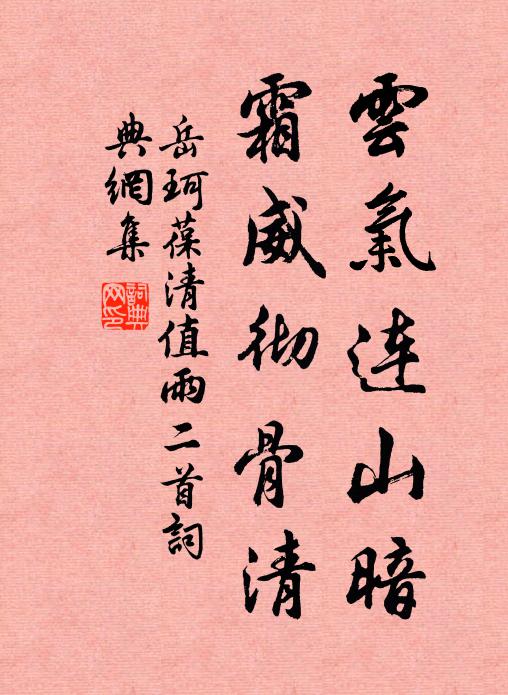 雲氣连山暗
霜威彻骨清
岳珂葆清值雨二首詞
典網集
詞典
网印